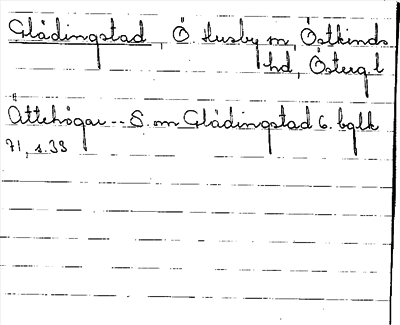 Glådingstad, Ö Husby sn, Östkinds
hd, Österg.l
Ättehögar -- S. om Glådingstad 6. bqlk
71, s. 33